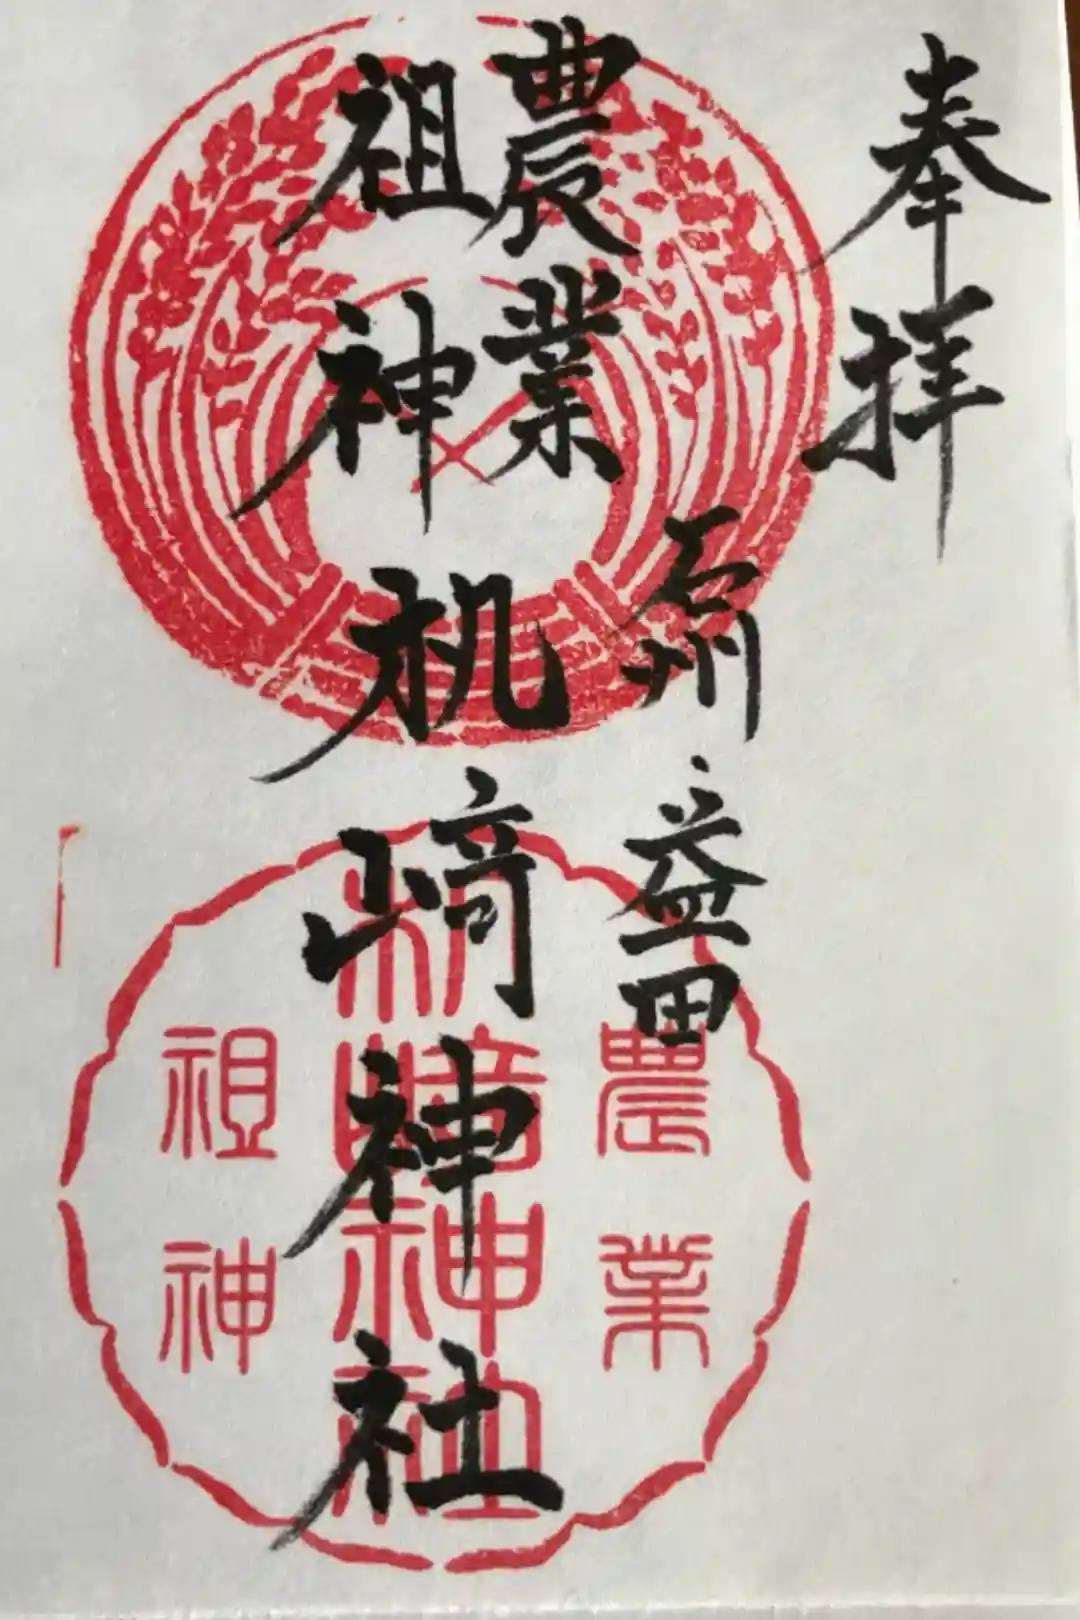 奉拝
農業
祖神
石州益田
机崎神社
農業
机崎神社
祖神